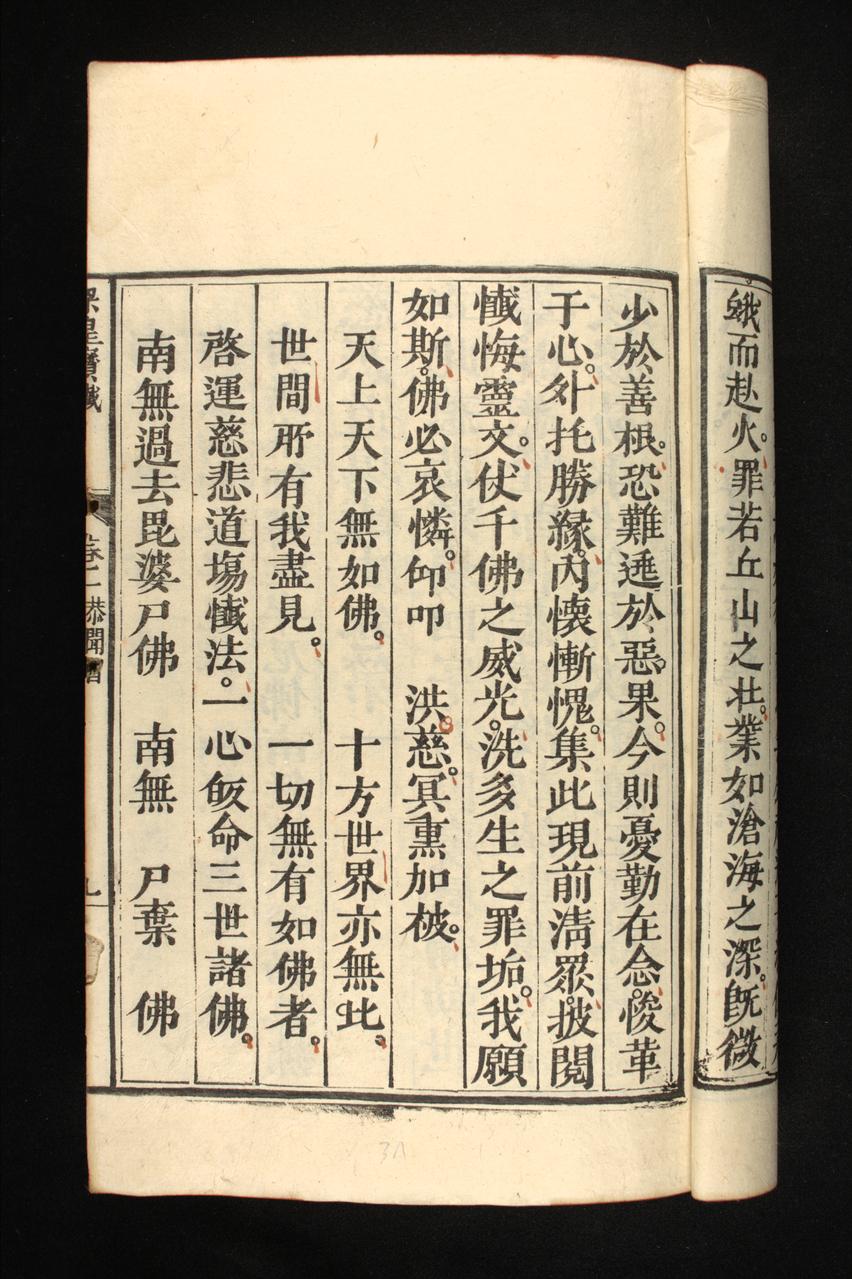 蛾而赴火。罪若丘山之壯。業如滄海之深。旣微
少於善根。恐難逃於惡果。今則憂勤在念。悛革
于心。外托勝緣。內懷慚愧。集此現前清眾。披閱
懺悔靈文。仗千佛之威光。洗多生之罪垢。我願
如斯。佛必哀憐。仰叩　洪慈。冥熏加被。
天上天下無如佛。　十方世界亦無比。
世間所有我盡見。　一切無有如佛者。
啓運慈悲道場懺法。一心皈命三世諸佛。
南無過去毘婆尸佛　南無　尸棄　佛
皇寶懺　卷一　恭聞　九